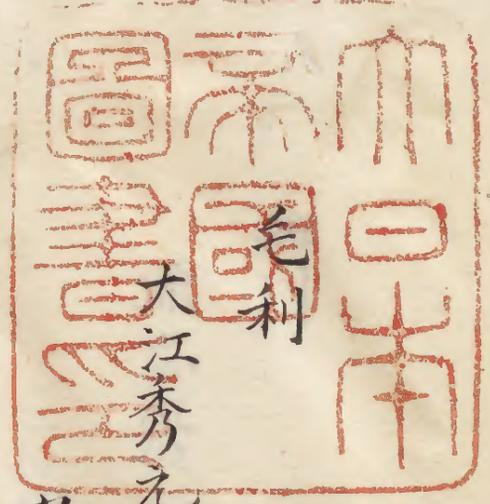 大日本
帝國
圖書印
毛利
大江秀元